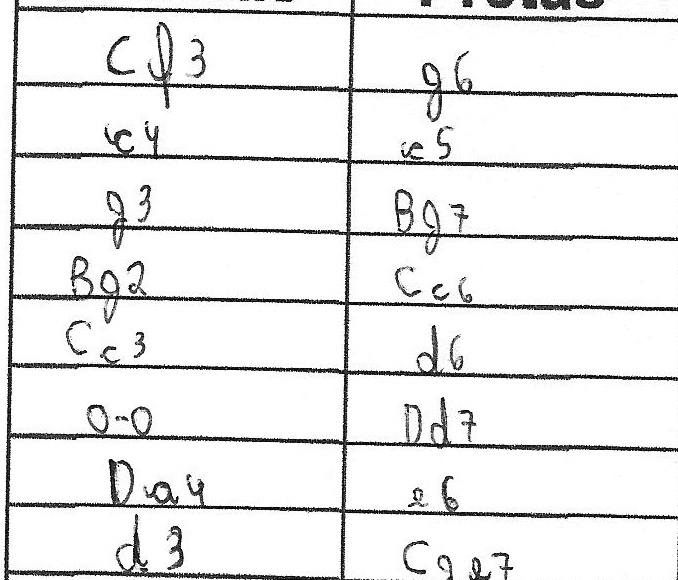 Cf3 g6
c4 c5
g3 Bg7
Bg2 Cc6
Cc3 d6
0-0 Dd7
Da4 e6
d3 Cge7